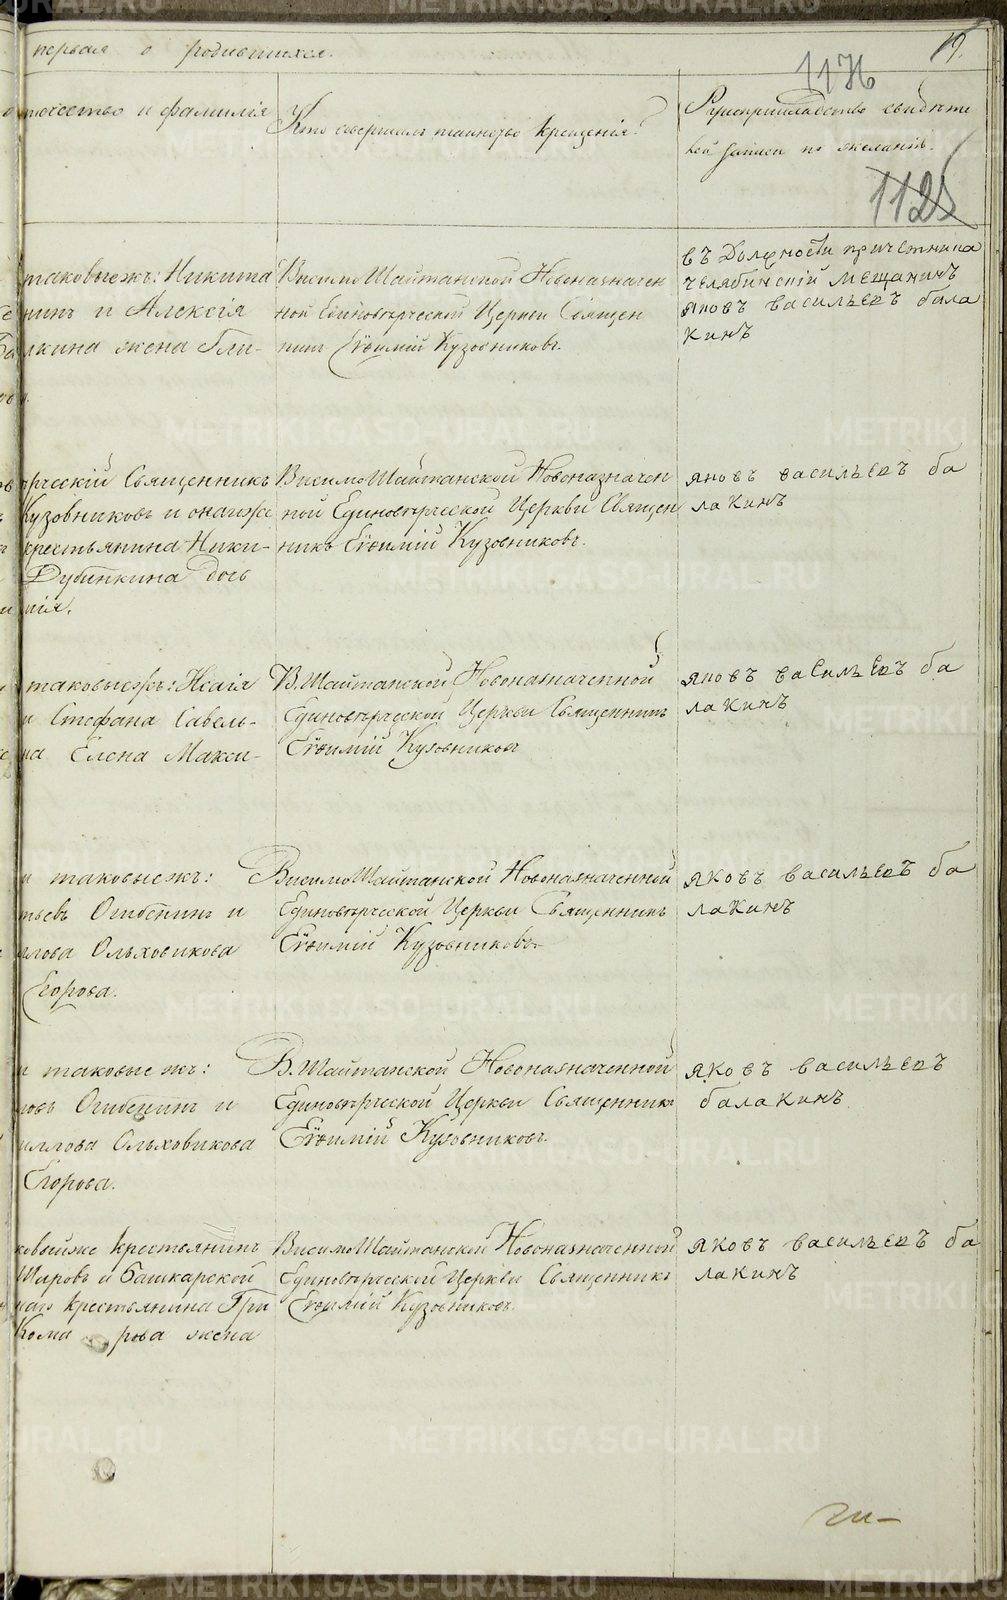 первая о родившихся.
19.
1176
отчество и фамилія
Кто совершалъ таинство крещенія?
Рукоприкладство свидѣте
лей записи по желанію.
1125
таковыежъ: Никита
нинъ и Алексія
лкина жена Гли-
Висимо Шайтанской Новоназначен
ной Единовѣрческой Церкви Священ
никъ Евѳимій Кузовниковъ.
въ Должности причетника
челябинскій мещанинъ
яковъ васильевъ бала
кинъ
ѣрческій Священникъ
Кузовниковъ и онаяже
крестьянина Ники-
Дубинкина дочь
нія.
Висимо Шайтанской Новоназначен
ной Единовѣрческой Церкви Священ
никъ Евѳимій Кузовниковъ.
яковъ васильевъ ба
лакинъ
таковыежъ: Исаія
и Стефана Савель-
на Елена Макси-
В. Шайтанской Новоназначенной
Единовѣрческой Церкви Священникъ
Евѳимій Кузовниковъ
яковъ васильевъ ба
лакинъ
и таковыежъ:
тьевъ Огибенинъ и
илова Ольховикова
Егорова.
Висимо Шайтанской Новоназначенной
Единовѣрческой Церкви Священникъ
Евѳимій Кузовниковъ.
яковъ васильевъ ба
лакинъ
и таковыежъ:
новъ Огибенинъ и
иллова Ольховикова
Егорова.
В. Шайтанской Новоназначенной
Единовѣрческой Церкви Священникъ
Евѳимій Кузовниковъ.
яковъ васильевъ
балакинъ
ковыйже крестьянинъ
Шировъ и Башкарской
наго крестьянина Гри
Кома рова жена
Висимо Шайтанской Новоназначенной
Единовѣрческой Церкви Священникъ
Евѳимій Кузовниковъ.
яковъ васильевъ ба
лакинъ
METRIKI.GASO-URAL.RU